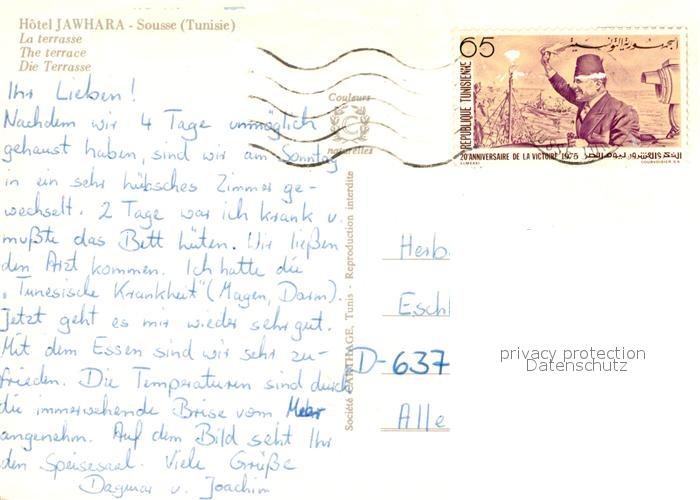 Hôtel JAWHARA - Sousse (Tunisie)
La terrasse
The terrace
Die Terrasse
Ihr Lieben!
Nachdem wir 4 Tage unmöglich
gehaust haben, sind wir am Sonntag
in ein sehr hübsches Zimmer ge-
wechselt. 2 Tage war ich krank u.
mußte das Bett hüten. Wir ließen
den Arzt kommen. Ich hatte die
„Tunesische Krankheit" (Magen, Darm).
Jetzt geht es mir wieder sehr gut.
Mit dem Essen sind wir sehr zu-
frieden. Die Temperaturen sind durch
die immerwehende Brise vom Meer
angenehm. Auf dem Bild seht Ihr
den Speisesaal. Viele Grüße
Dagmar u. Joachim
Couleurs
naturelles
Société CARTHAGE, Tunis - Reproduction interdite
65
الجمهورية التونسية
REPUBLIQUE TUNISIENNE
20 ANNIVERSAIRE DE LA VICTOIRE 1975
COURVOISIER S.A.
Herb
Eschl
D-637
Alle
privacy protection
Datenschutz